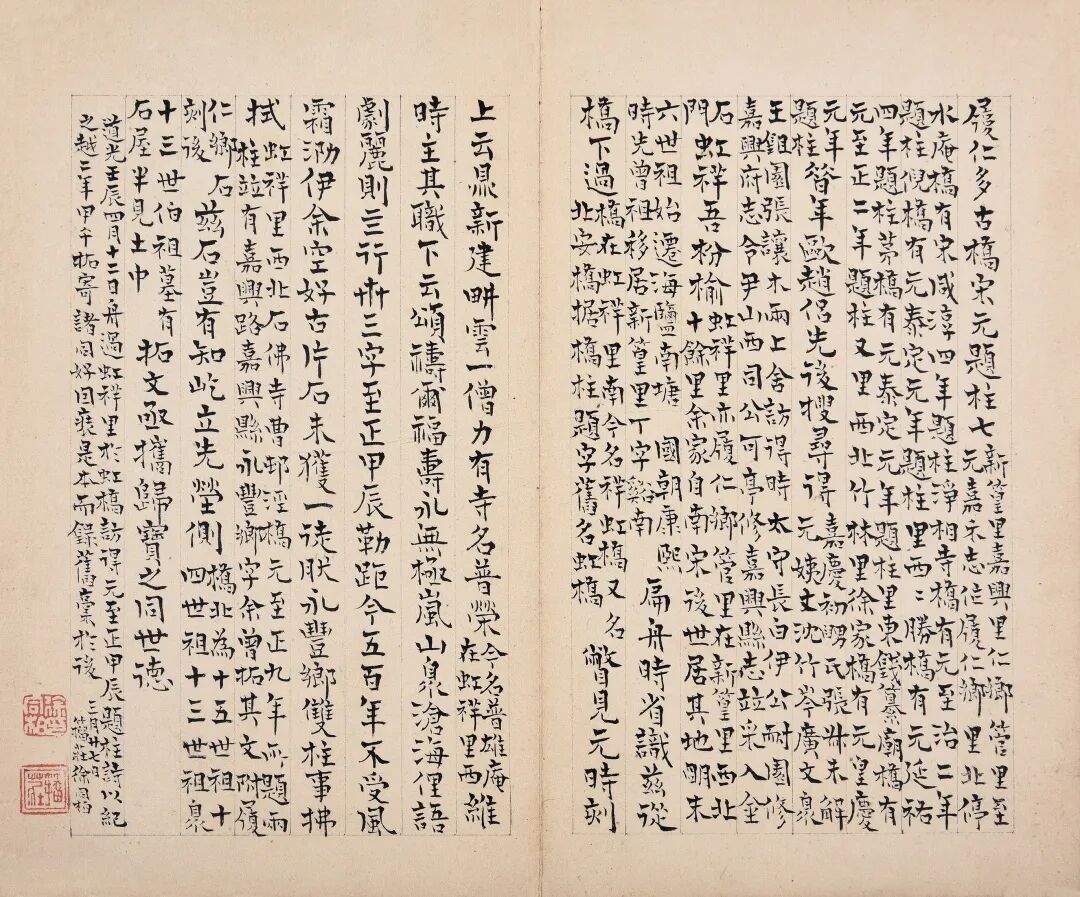 履仁多古橋宋元題柱七
新篁里嘉興里仁鄉管里至
元嘉禾志作履仁鄉里北停
水庵橋有宋咸淳四年題柱淨相寺橋有元至治二年
題柱倪橋有元泰定元年題柱里西二勝橋有元延祐
四年題柱茅橋有元泰定元年題柱里東錢纂廟橋有
元至正二年題柱又里西北竹林里徐家橋有元皇慶
元年
題柱
昝年歐趙侶先後搜尋得
嘉慶初舅氏張叔未解
元姨丈沈竹岑廣文泉
王雞園張讓木兩上舍訪得時太守長白伊公耐園修
嘉興府志令尹山西司公可亭修嘉興縣志竝采入金
石
門
虹祥吾枌榆
虹祥里亦履仁鄉管里在新篁里西北
十餘里余家自南宋後世居其地明末
六世祖始遷海鹽南塘 國朝康熙
時先曾祖移居新篁里丁字谿南
扁舟時省識茲從
橋下過
橋在虹祥里南今名祥虹橋又名
北安橋据橋柱題字舊名虹橋
瞥見元時刻
上云鼎新建畊雲一僧力有寺名普榮
今名普雄庵
在虹祥里西
維
時主其職下云頌禱爾福壽永無極嵐山泉滄海俚語
劇麗則三行卅三字至正甲辰勒距今五百年不受風
霜泐伊余空好古片石未獲一徒肰永豐鄉雙柱事拂
拭
虹祥里西北石佛寺曹邨涇橋元至正九年所題兩
柱竝有嘉興路嘉興縣永豐鄉字余曾拓其文附履
仁鄉石
刻後
茲石豈有知屹立先塋側
橋北為十五世祖十
四世祖十三世祖泉
十三世伯祖墓有
石屋半見土中
拓文亟攜歸寶之同世德
道光壬辰四月十二日舟過虹祥里於虹橋訪得元至正甲辰題柱詩以紀
之越二年甲午拓寄諸同好因裝是本而錄舊藁於後
三月廿七日
籀莊徐同柏
徐同柏
籀莊